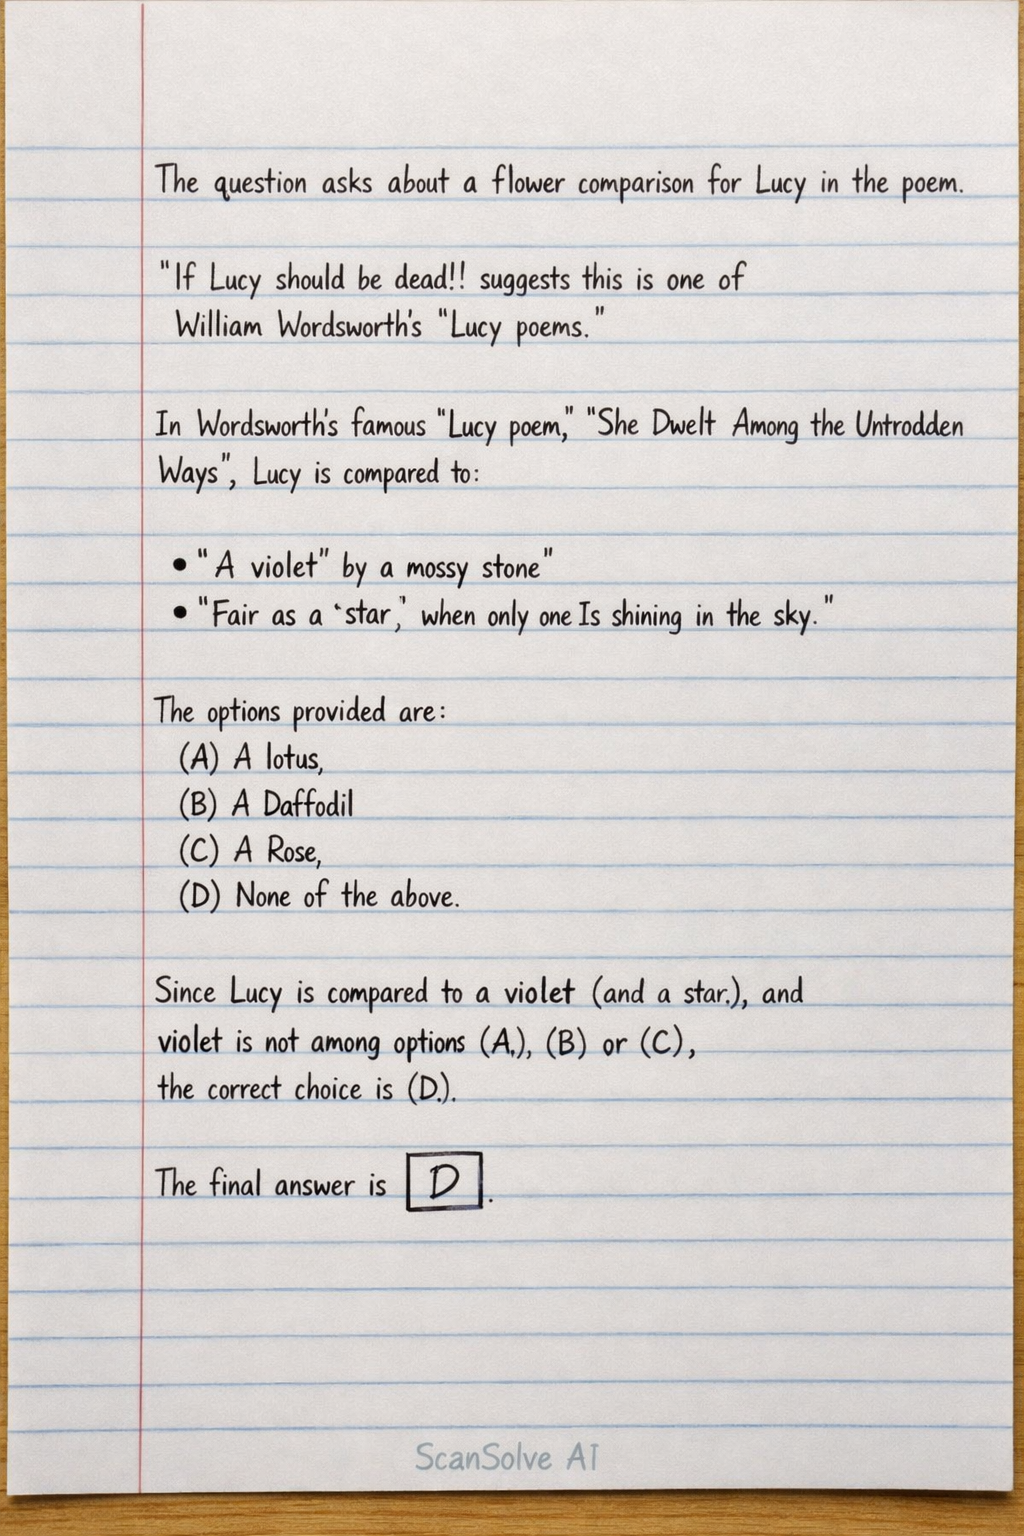 The question asks about a flower comparison for Lucy in the poem.
"If Lucy should be dead!! suggests this is one of
William Wordsworth's "Lucy poems."
In Wordsworth's famous "Lucy poem," "She Dwelt Among the Untrodden
Ways", Lucy is compared to:
• "A violet" by a mossy stone"
• "Fair as a 'star,' when only one Is shining in the sky."
The options provided are:
(A) A lotus,
(B) A Daffodil
(C) A Rose,
(D) None of the above.
Since Lucy is compared to a violet (and a star.), and
violet is not among options (A.), (B) or (C),
the correct choice is (D.).
The final answer is D.
ScanSolve AI